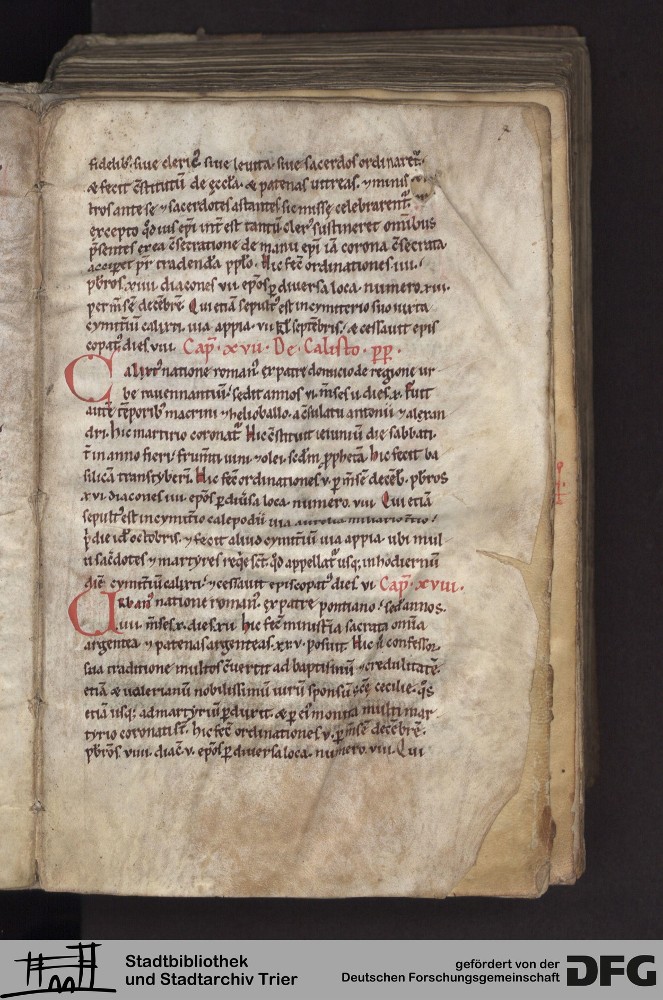 fidelib; siue cleric᷒ siue leuita· siue sacerdos ordinaret᷑·
& fecit c̄stitutū de ęccl̄a· & patenas uitreas· ⁊ minis
tros ante se ⁊ sacerdotes astantes sic missę celebrarent᷑·
excepto qd̄ ius ep̄i int̄ est tantū cler᷒ sustineret omīibus
p̄sentes ex ea c̄secratione de manu ep̄i iā corona c̄secrata
acciꝑet pr̄ tradenda pp̄lo· Hic fec̄ ordinationes iiii·
pb̄ros· xiiii diacones vii ep̄os ꝑ diuersa loca· numero· xiii·
per m̄sē decēbrē· Qui etiā sepult᷒ est in cymiterio suo iuxta
cymit̄iū calixti· uia appia· vii kl̄ septēbris· & cessauit epis
copat᷒ dies· viii· Cap̄· xvii· De Calisto· pp̄·
Calixt᷒ natione roman᷒ ex patre domicio de regione ur
be rauennantiū· sedit annos vi· m̄ses ii· dies· x· Fuit
autē tēporib᷒ macrini ⁊ helioballo· a c̄sulatu antonii ⁊ alexan
dri· hic martirio coronat᷑· Hic c̄stituit ieiuniū die sabbati·
t̄ in anno fieri frum̄ti uini ⁊ olei· sed̄m ꝓphetā· hic fecit ba
silicā transtyberī· Hic fec̄ ordinationes v· ꝑ m̄sē decēb̄· pb̄ros
xvi· diacones iiii· ep̄os ꝑ diu̾sa loca· numero· viii· Qui etiā
sepult᷒ est in cymit̄io calepodii uia aurelia miliario t̄tio·
p̄die id᷒ octobris· ⁊ fecit aliud cymit̄iū uia appia· ubi mul
ti sac̄dotes ⁊ martyres reqesct̄· qd̄ appellat᷑ usq; in hodiernū
diē cymit̄iū calixti· ⁊ cessauit episcopat᷒ dies· vi Cap̄· xviii·
Urban᷒ natione roman᷒· ex patre pontiano· sed̄ annos·
iiii· m̄ses· x· dies· xii· hic fec̄ minist̄ia sacrata om̄ia
argentea ⁊ patenas argenteas· xxv· posuit· Hic ū confessor
sua traditione multos c̄uertit ad baptismū ⁊ credulitatē·
etiā & ualerianū nobilissimū uirū sponsū sc̄ę cecilie· q̊s
etiā usq; ad martyriū ꝑduxit· & ꝑ ei᷒ monita multi mar
tyrio coronati st̄· hic fec̄ ordinationes v· ꝑ m̄sē decēbrē·
pb̄ros· viiii· diac̄· v· ep̄os ꝑ diuersa loca· numero· viii· Qui
Stadtbibliothek
und Stadtarchiv Trier
gefördert von der
Deutschen Forschungsgemeinschaft
DFG